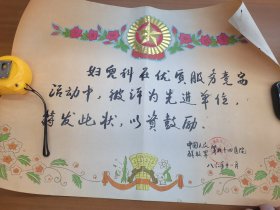 妇儿科在优质服务竞赛
活动中，被评为先进单位，
特发此状，以资鼓励。
中国人民
解放军第九十四医院
八六年十一月